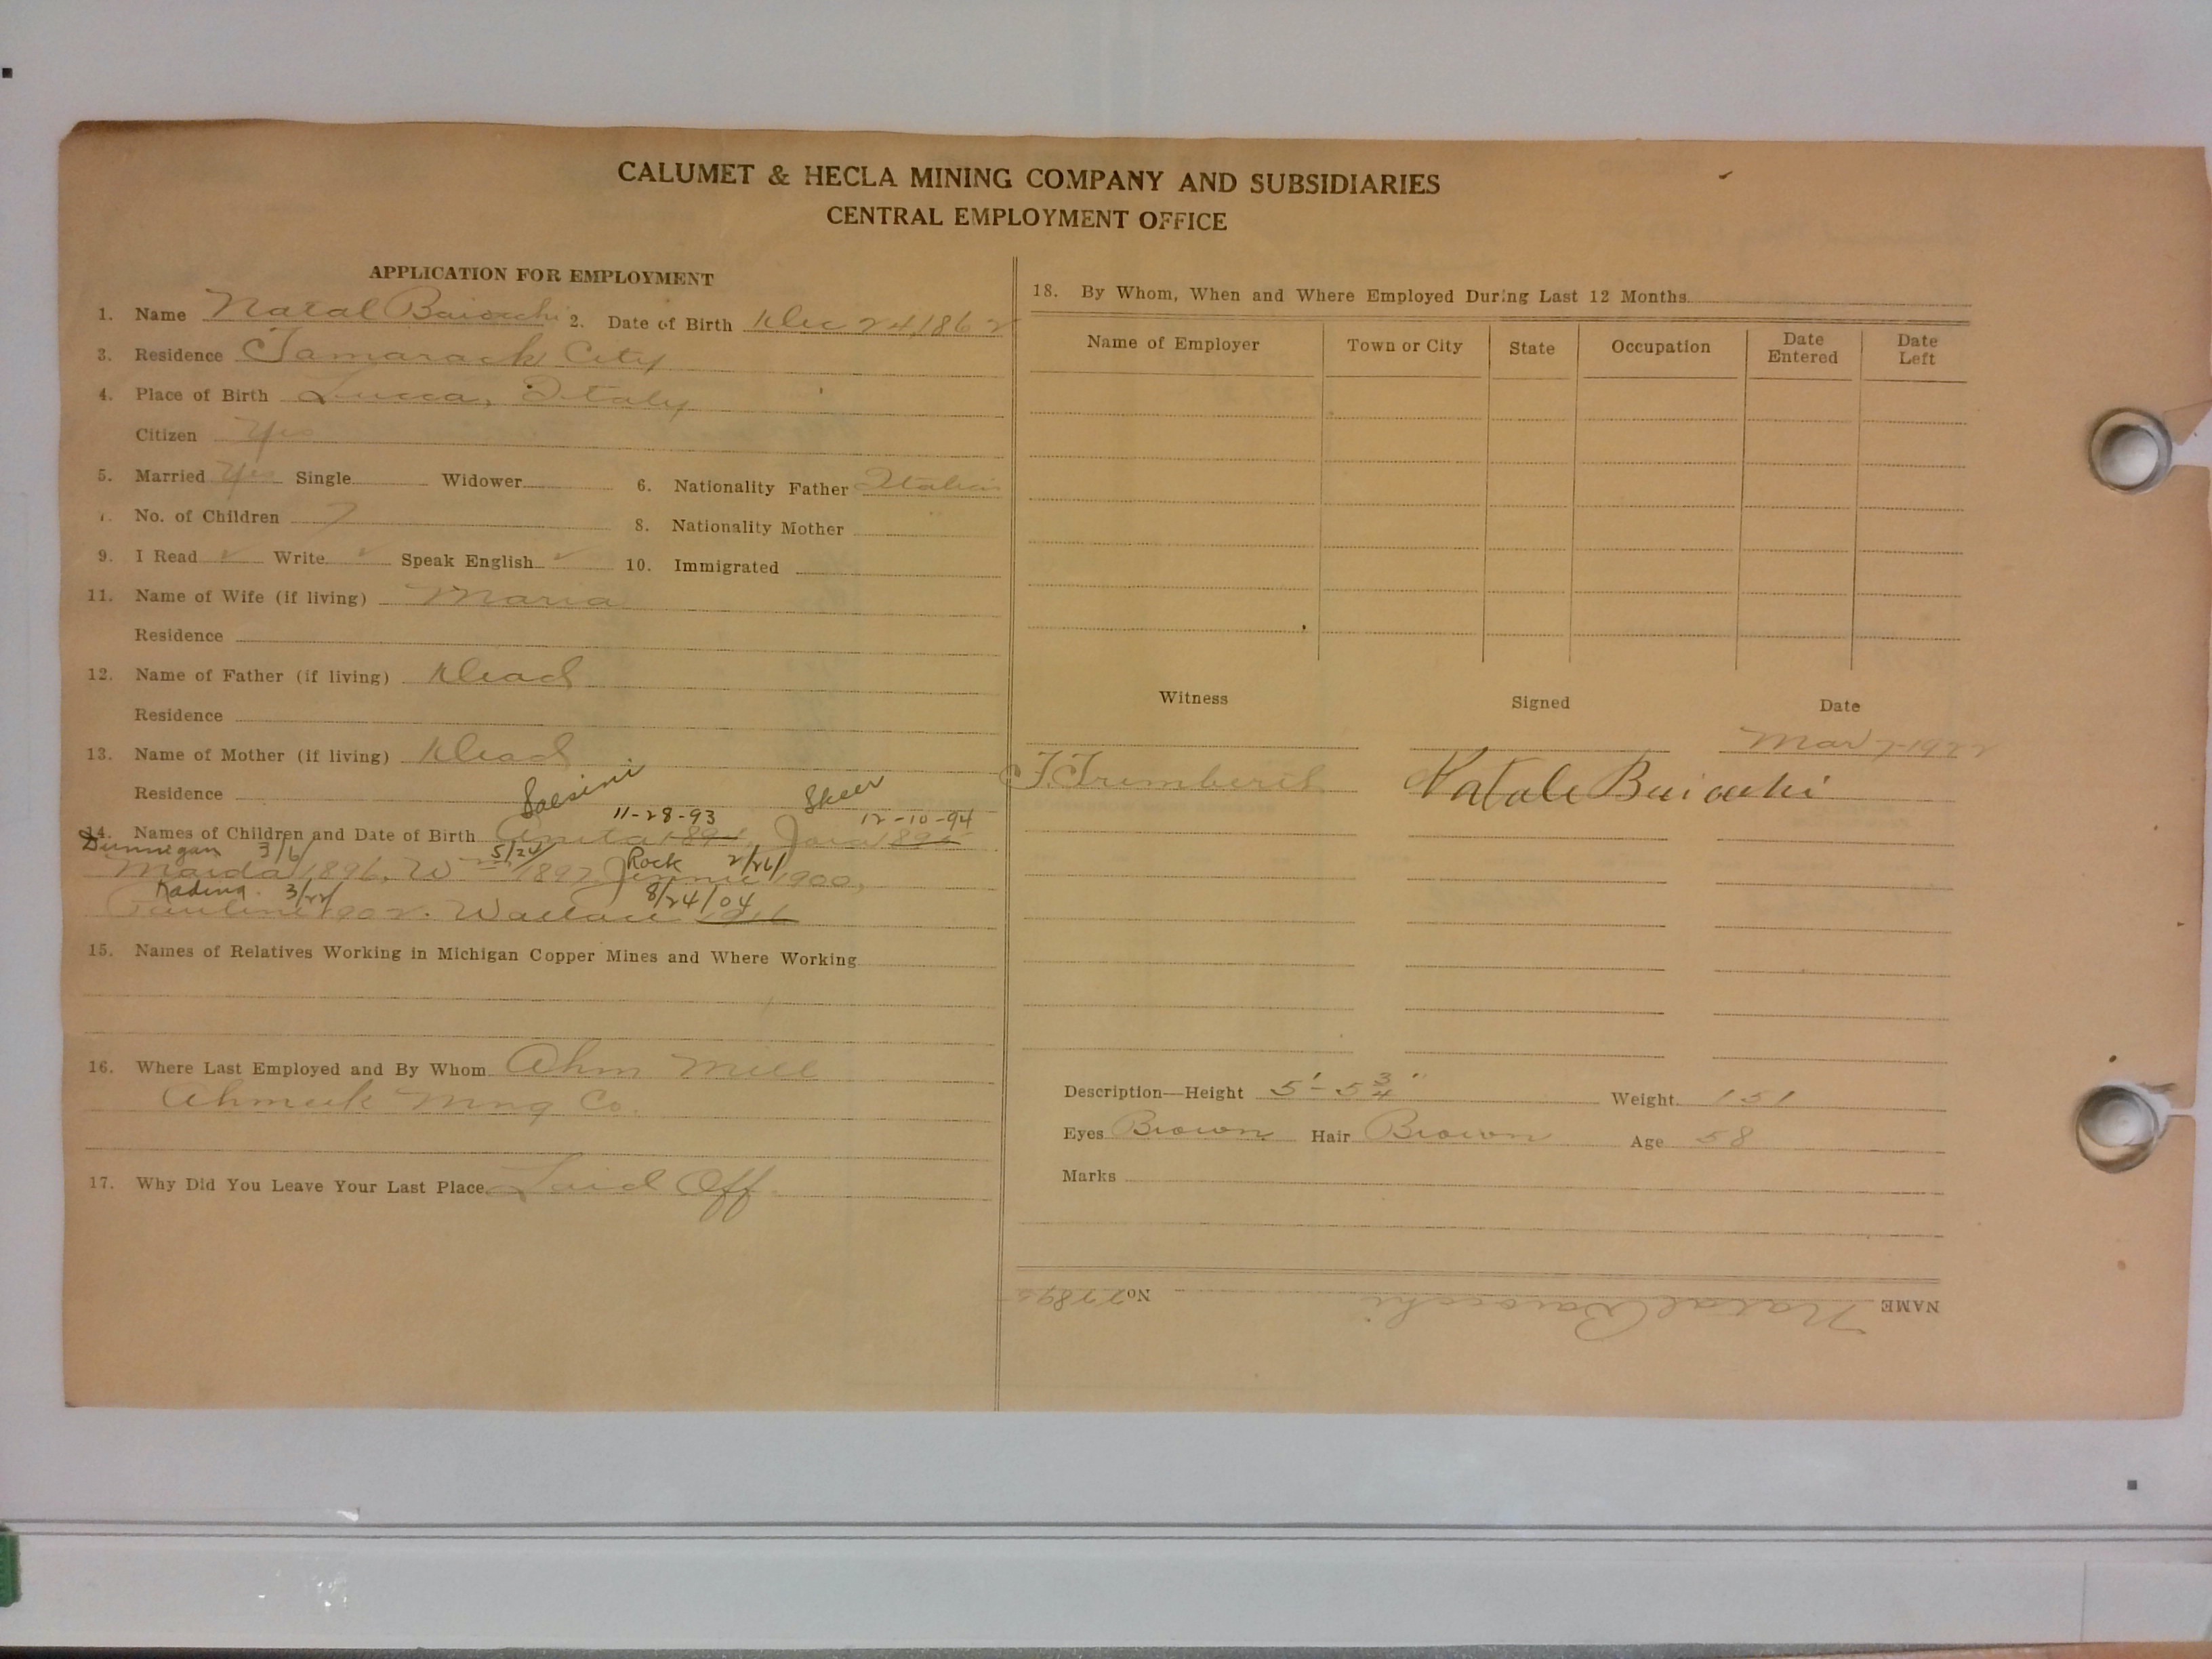 CALUMET & HECLA MINING COMPANY AND SUBSIDIARIES
CENTRAL EMPLOYMENT OFFICE
APPLICATION FOR EMPLOYMENT
1. Name Natal Baiocchi 2. Date of Birth Dec 24, 1862
3. Residence Tamarack City
4. Place of Birth Lucca, Italy
Citizen Yes
5. Married Yes Single Widower 6. Nationality Father Italian
7. No. of Children 7 8. Nationality Mother "
9. I Read ✓ Write ✓ Speak English ✓ 10. Immigrated
11. Name of Wife (if living) Maria
Residence
12. Name of Father (if living) Dead
Residence
13. Name of Mother (if living) Dead
Residence
11-28-93 12-10-94
14. Names of Children and Date of Birth Anita
Dunnigan 3/6 5/24 Rock 2/26/
Maida 1896, Wm 1897 Jennie 1900,
3/22/ 8/24/04
Pauline 1902. Wallace
15. Names of Relatives Working in Michigan Copper Mines and Where Working
16. Where Last Employed and By Whom Ahm Mill
Ahmeek Mng Co.
17. Why Did You Leave Your Last Place Laid Off.
18. By Whom, When and Where Employed During Last 12 Months
Name of Employer Town or City State Occupation Date Entered Date Left
Witness Signed Date
Mar 7-1922
Natale Baiocchi
Description—Height 5'-5 3/4" Weight 151
Eyes Brown Hair Brown Age 58
Marks
NAME Natal Baiocchi No